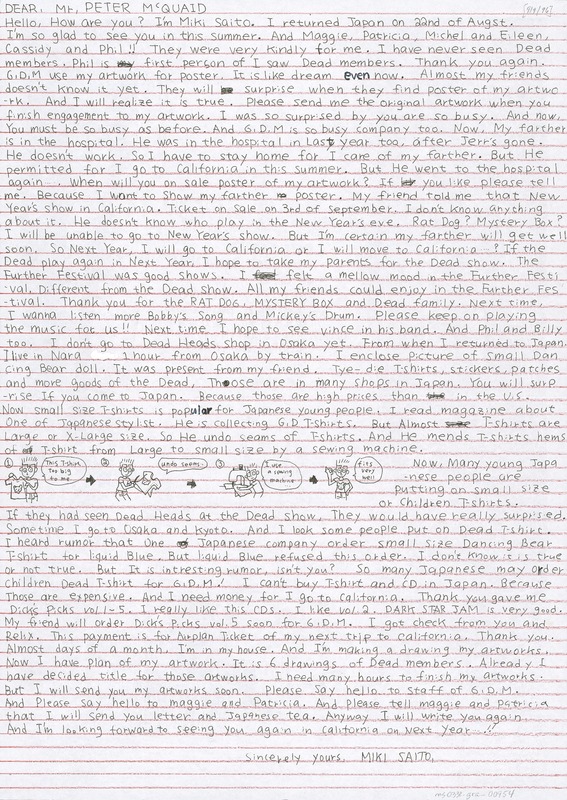 DEAR. Mr, PETER McQUAID
Hello. How are you? I'm Miki Saito. I returned Japan on 22nd of Augst.
I'm so glad to see you in this summer. And Maggie, Patricia, Michel and Eileen,
Cassidy and Phil!! They were very kindly for me. I have never seen Dead
members. Phil is first person of I saw Dead members. Thank you again.
G.D.M use my artwork for poster. It is like dream even now. Almost my friends
doesn't know it yet. They will surprise when they find poster of my artwo
-rk. And I will realize it is true. Please send me the original artwork when you
finish engagement to my artwork. I was so surprised by you are so busy. And now,
You must be so busy as before. And G.D.M is so busy company too. Now, My farther
is in the hospital. He was in the hospital in Last year too, after Jerr's gone.
He doesn't work. So I have to stay home for I care of my farther. But He
permitted for I go to California in this summer. But He went to the hospital
again. When will you on sale poster of my artwork? If you like please tell
me. Because I want to Show my farther poster. My friend told me that New
Year's show in California. Ticket on sale on 3rd of september. I don't know anything
about it. He doesnt know who play in the New Year's eve. Rat Dog? Mystery Box?
I will be unable to go to New Year's show. But I'm certain my farther will get well
soon. So Next Year, I will go to California or I will move to California-? If the
Dead play again in Next Year, I hope to take my parents for the Dead show. The
Further Festival was good shows. I felt a mellow mood in the Further Festi
-val. Different from the Dead show. All my friends could enjoy in the Further Fes
-tival. Thank you for the RAT DOG, MYSTERY BOX and Dead family. Next time,
I wanna listen more Bobby's Song and Mickey's Drum. Please keep on playing
the music for us!! Next time, I hope to see vince in his band. And Phil and Billy
too. I don't go to Dead Heads shop in Osaka yet. From when I returned to Japan.
I live in Nara 1 hour from Osaka by train. I enclose Picture of Small Dan
cing Bear doll. It was present from my friend. Tye-die T-shirts, stickers, patches
and more goods of the Dead, Those are in many shops in Japan. You will surp
-rise If you come to Japan. Because those are high prices than in the U.S.
Now small size T-shirts is popular for Japanese young people. I read magazine about
One of Japanese stylist. He is collecting G.D.T-shirts. But Almost T-shirts are
Large or X-Large size. So He undo seams of T-shirts. And He mends T-shirts hems
of T-shirt from Large to small size by a sewing machine.
① This T-shirt Too big to me
② undo seams.
③ I use a sewing machine
fits very well
Now, Many young Japa
-nese people are
putting on small size
or Children T-shirts.
If they had seen Dead Heads at the Dead show, They would have really surprised.
Sometime I go to Osaka and Kyoto. And I look some people put on Dead T-shirt.
I heard rumor that One Japanese company order small size Dancing Bear
T-shirt for liquid Blue. But liquid Blue refused this order. I don't know it is true
or not true. But It is intresting rumor, isn't you? So many Japanese may order
Children Dead T-shirt for G.D.M! I can't buy T-shirt and CD in Japan. Because
Those are expensive. And I need money for I go to california. Thank you gave me
Dick's Picks vol.1-5. I really like this CDs. I like vol.2. DARK STAR JAM is very good.
My friend will order Dick's Picks vol.5 soon for G.D.M. I got check from you and
Relix. This payment is for Airplan Ticket of my next trip to California. Thank you.
Almost days of a month, I'm in my house. And I'm making a drawing my artworks.
Now I have plan of my artwork. It is 6 drawings of Dead members. Already I
have decided title for those artworks. I need many hours to finish my artworks.
But I will send you my artworks soon. Please say hello to staff of G.D.M.
And Please say hello to maggie and Patricia. And Please tell maggie and patricia
that I will send you letter and Japanese tea. Anyway I will write you again.
And I'm looking forward to seeing you again in california on Next Year...!!
Sincerely yours, MIKI SAITO.